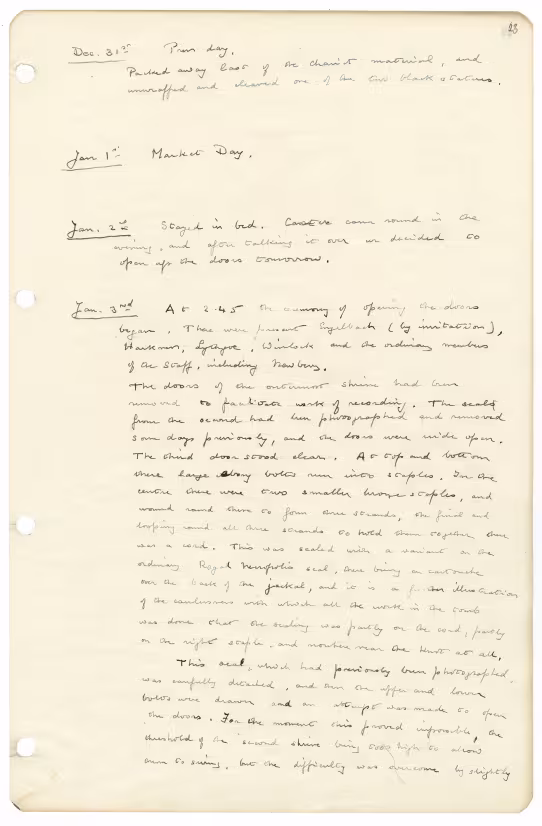 23
Dec. 31st Press day.
Packed away last of the chariot material, and
unwrapped and cleaned one of the two black statues.
Jan 1st Market Day.
Jan. 2nd Stayed in bed. Carter came round in the
evening, and after talking it over we decided to
open up the doors tomorrow.
Jan. 3rd At 2.45 the ceremony of opening the doors
began. There were present Engelbach (by invitation),
Harkness, Lythgoe, Winlock and the ordinary members
of the staff, including Newberry.
The doors of the outermost shrine had been
removed to facilitate work of recording. The seals
from the second had been photographed and removed
some days previously, and the doors were wide open.
The third door stood clear. At top and bottom
there large ebony bolts run into staples. In the
centre there were two smaller bronze staples, and
wound round these to form three strands, the final end
looping round all three strands to hold them together there
was a cord. This was sealed with a variant on the
ordinary Royal Necropolis seal, there being a cartouche
over the back of the jackal, and it is a further illustration
of the carelessness with which all the work in the tomb
was done that the sealing was partly on the cord, partly
on the right staple, and nowhere near the knot at all.
This seal, which had previously been photographed,
was carefully detailed, and then the upper and lower
bolts were drawn and an attempt was made to open
the doors. For the moment this proved impossible, the
threshold of the second shrine being too high to allow
them to swing, but the difficulty was overcome by slightly